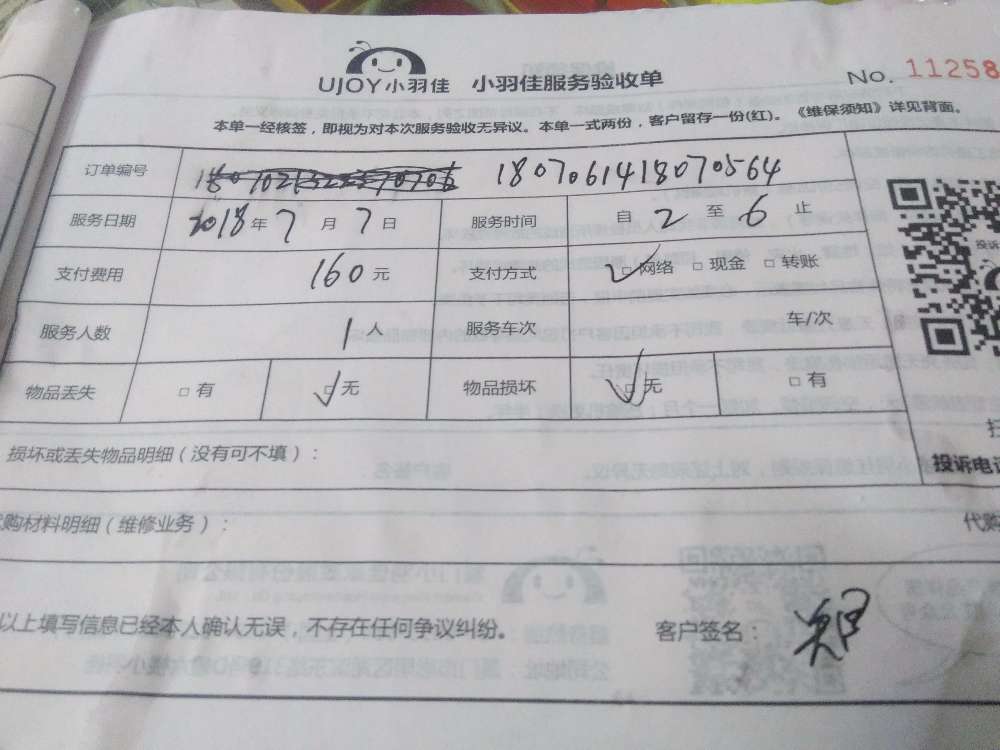 UJOY小羽佳 小羽佳服务验收单 No. 11258
本单一经核签，即视为对本次服务验收无异议。本单一式两份，客户留存一份(红)。《维保须知》详见背面。
订单编号 1807061418070564
服务日期 2018年7月7日 服务时间 自2至6止
支付费用 160元 支付方式 □网络 □现金 □转账
服务人数 1人 服务车次 车/次
物品丢失 □有 □无 物品损坏 □无 □有
损坏或丢失物品明细（没有可不填）：
投诉电
购材料明细（维修业务）： 代购
以上填写信息已经本人确认无误，不存在任何争议纠纷。 客户签名：郑